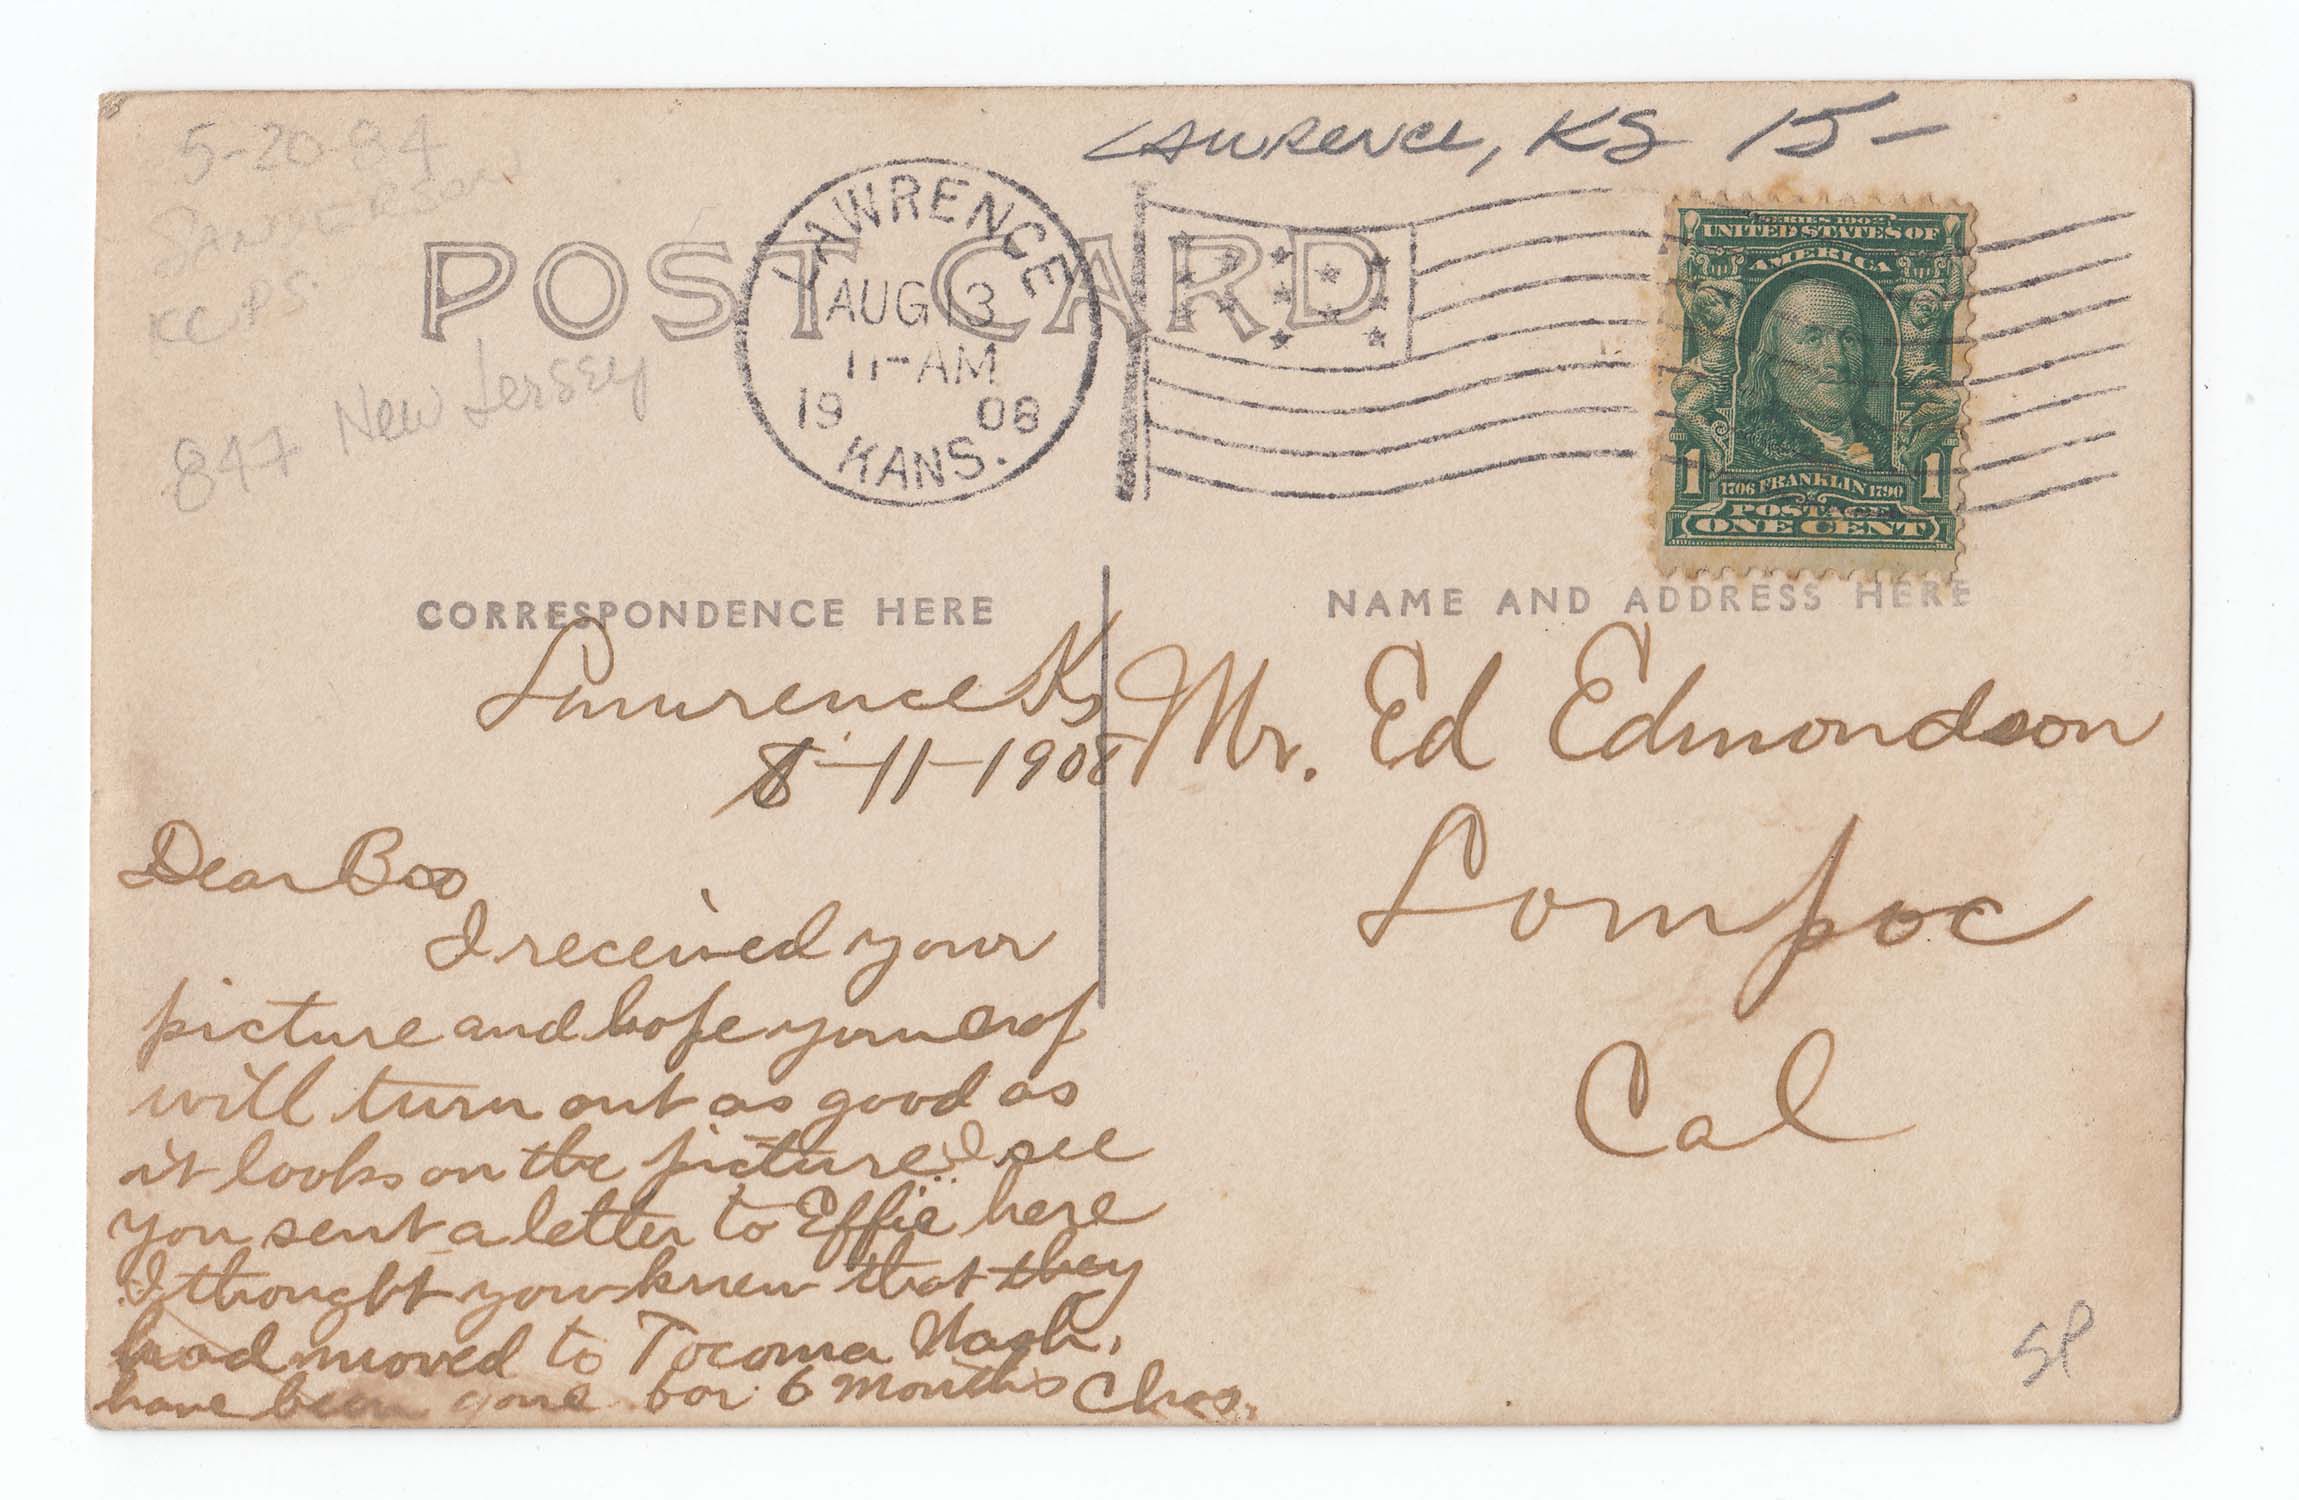 5-20-84
SANDERSON
KC PS.
847 New Jersey
LAWRENCE, KS 15-
POST CARD
LAWRENCE
AUG 13
11-AM
1908
KANS.
SERIES 1902
UNITED STATES OF
AMERICA
1 1706 FRANKLIN 1790 1
POSTAGE
ONE CENT
CORRESPONDENCE HERE
Lawrence Ks
8-11-1908
Dear Boo
I received your
picture and hope your crop
will turn out as good as
it looks on the picture. I see
you sent a letter to Effie here
I thought you knew that they
had moved to Tocoma Wash.
have been gone for 6 months Chas.
NAME AND ADDRESS HERE
Mr. Ed Edmondson
Lompoc
Cal
SP